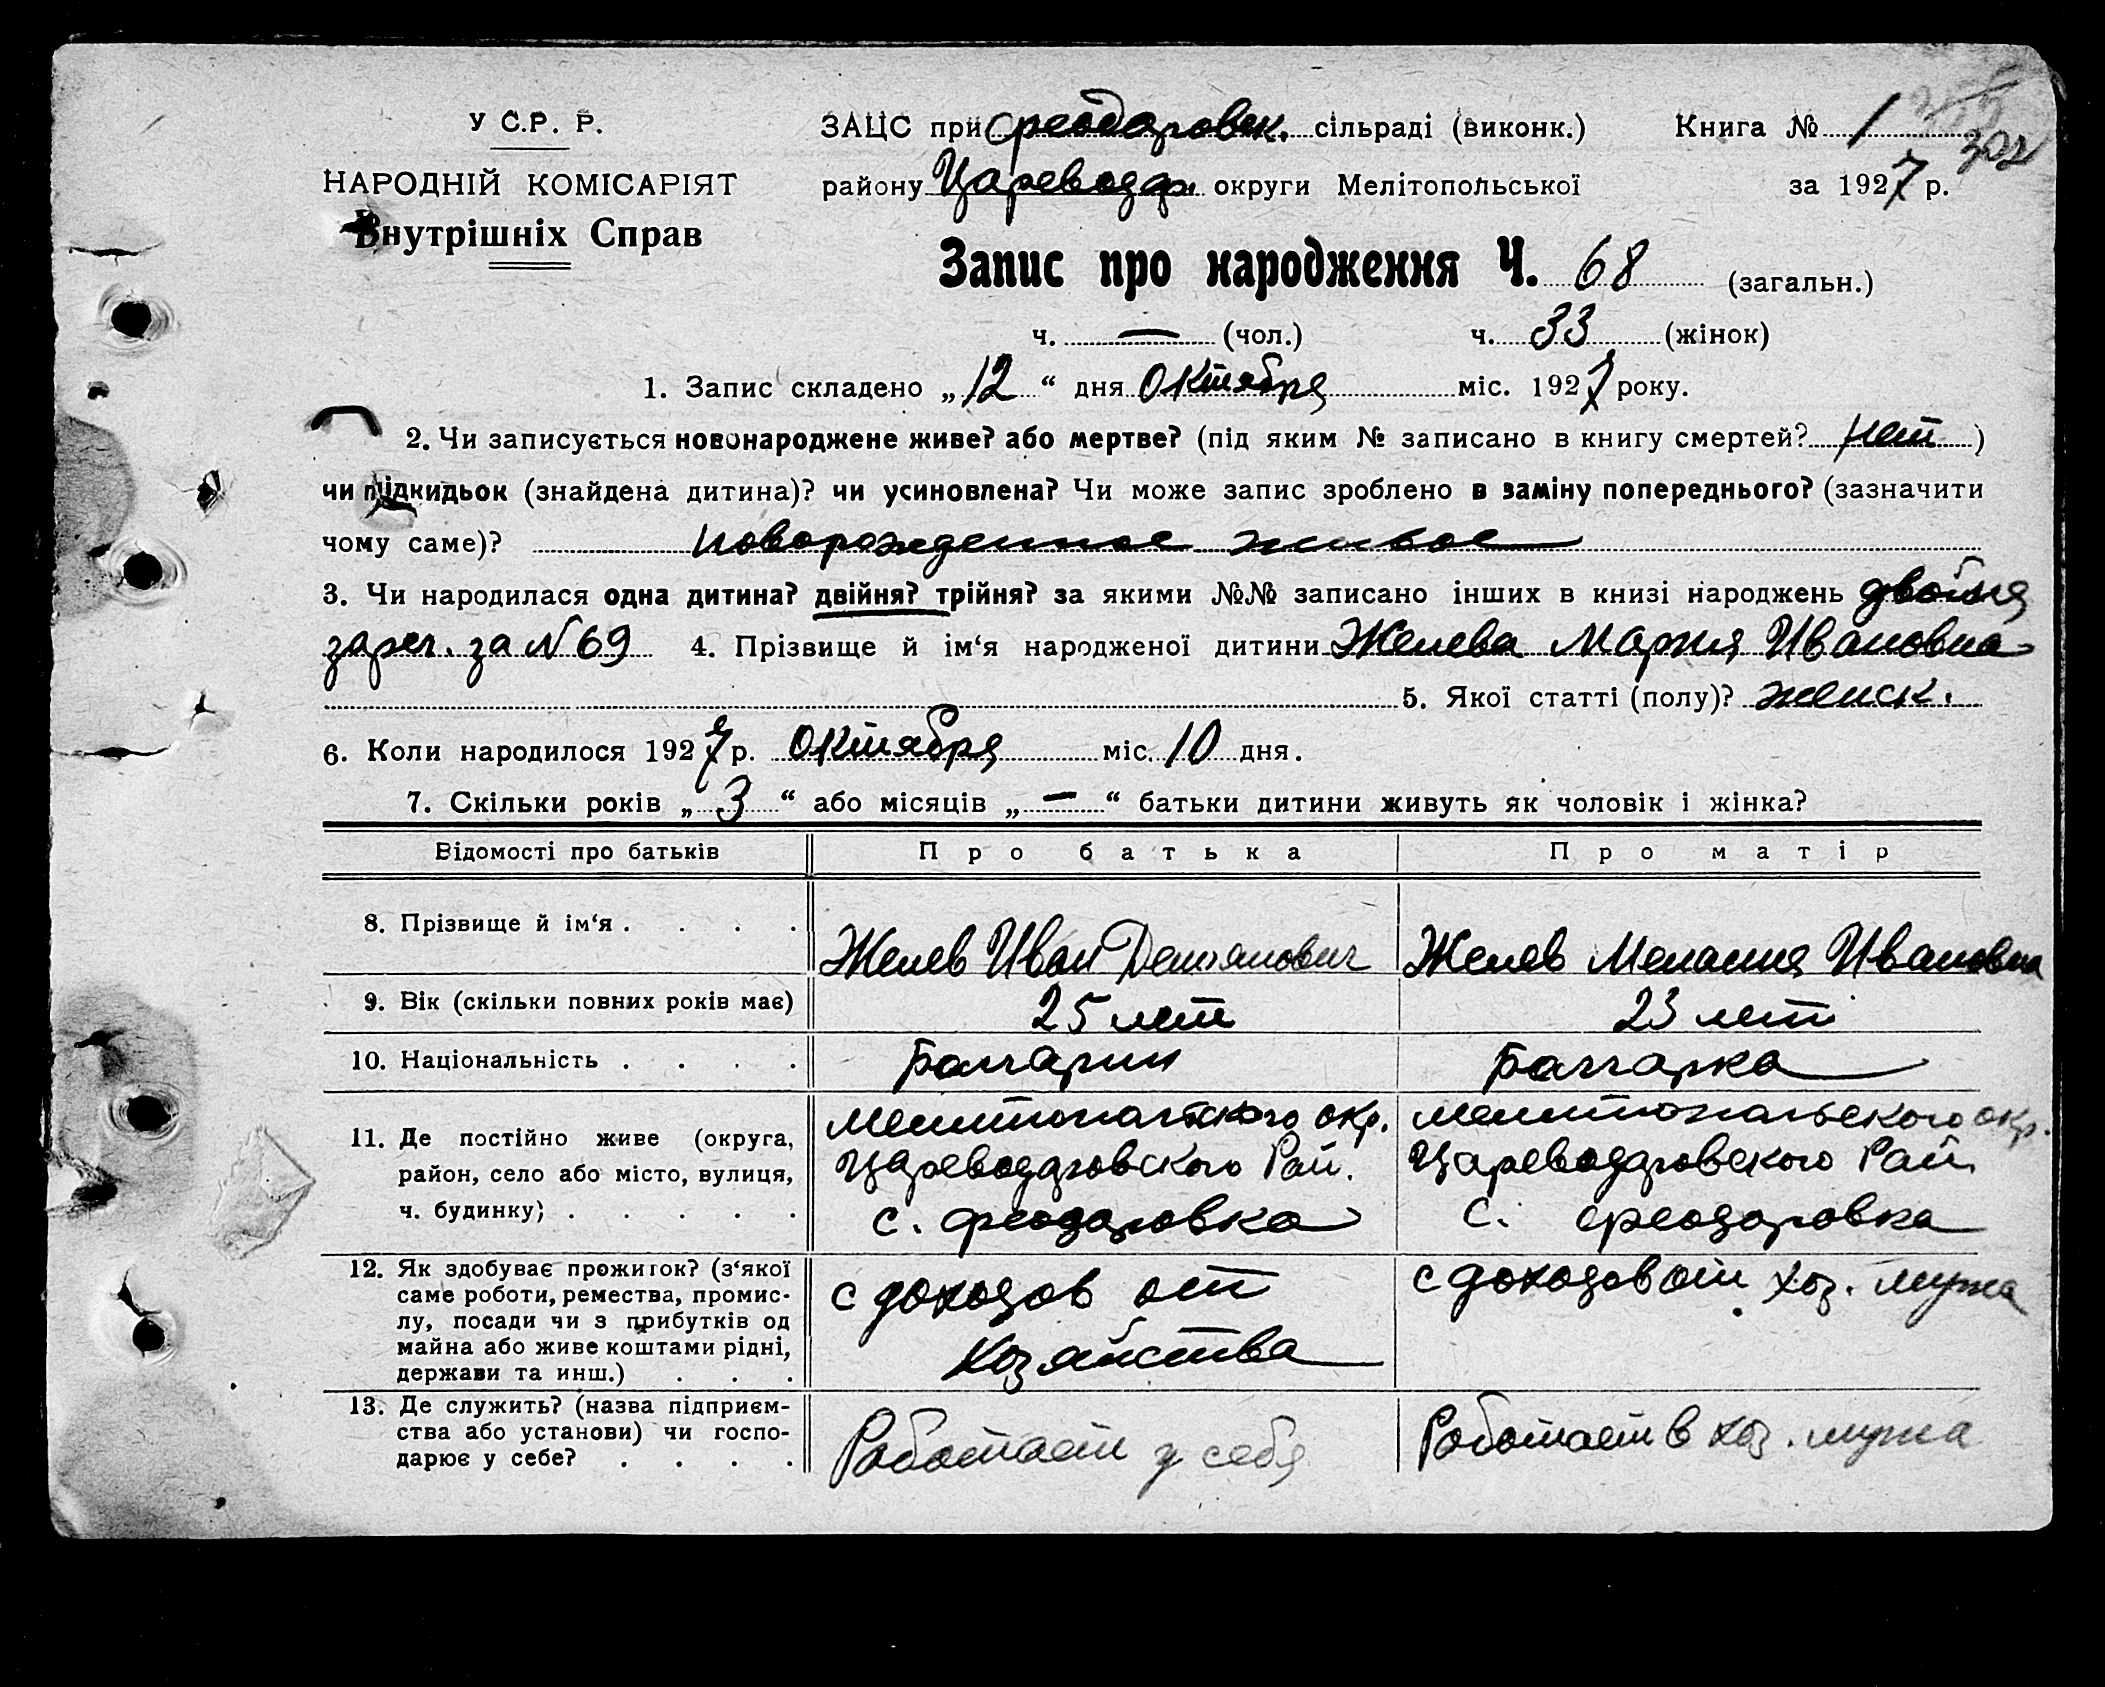 У С.Р. Р.
НАРОДНІЙ КОМІСАРІЯТ
Внутрішніх Справ
ЗАЦС при Феодоровск. сільраді (виконк.) Книга № 1
302
району Цареводар. округи Мелітопольської за 1927 р.
Запис про народження Ч. 68 (загальн.)
ч. — (чол.) ч. 33 (жінок)
1. Запис складено „12“ дня Октября міс. 1927 року.
2. Чи записується новонароджене живе? або мертве? (під яким № записано в книгу смертей? нет)
чи підкидьок (знайдена дитина)? чи усиновлена? Чи може запис зроблено в заміну попереднього? (зазначити
чому саме)? новорожденное живое
3. Чи народилася одна дитина? двійня? трійня? за якими №№ записано інших в книзі народжень двойня
зарег. за N 69 4. Прізвище й ім‘я народженої дитини Желева Мария Ивановна
5. Якої статті (полу)? женск.
6. Коли народилося 1927 р. Октября міс. 10 дня.
7. Скільки років „3“ або місяців „—“ батьки дитини живуть як чоловік і жінка?
Відомості про батьків Про батька Про матір
8. Прізвище й ім‘я . . . . Желев Иван Демьянович Желев Мелания Ивановна
9. Вік (скільки повних років має) 25 лет 23 лет
10. Національність . . . . Болгарин Болгарка
11. Де постійно живе (округа, Мелитопольского окр. Мелитопольского окр.
район, село або місто, вулиця, Цареводаровского Рай. Цареводаровского Рай.
ч. будинку) . . . . . с. Феодоровка с. Феодоровка
12. Як здобуває прожиток? (з‘якої с доходов от с доходов от хоз. мужа
саме роботи, ремества, промис-
лу, посади чи з прибутків од хозяйства
майна або живе коштами рідні,
держави та инш.) . . .
13. Де служить? (назва підприєм-
ства або установи) чи госпо- Работает у себя Работает в хоз. мужа
дарює у себе? . . . .